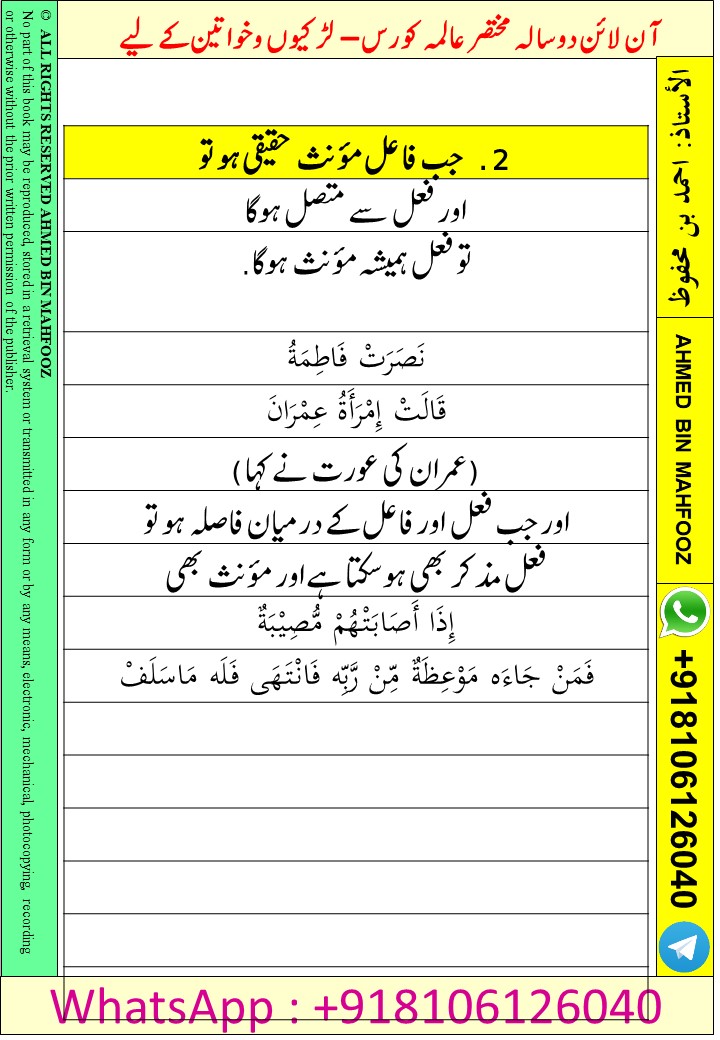 آن لائن دوسالہ مختصر عالمہ کورس– لڑکیوں وخواتین کے لیے
2. جب فاعل مؤنث حقیقی ہو تو
اور فعل سے متصل ہوگا
تو فعل ہمیشہ مؤنث ہوگا.
نَصَرَتْ فَاطِمَةُ
قَالَتْ إِمْرَأَةُ عِمْرَانَ
(عمران کی عورت نے کہا)
اور جب فعل اور فاعل کے درمیان فاصلہ ہو تو
فعل مذکر بھی ہو سکتا ہے اور مؤنث بھی
إِذَا أَصَابَتْهُمْ مُّصِيْبَةٌ
فَمَنْ جَاءَه مَوْعِظَةٌ مِّنْ رَّبِّه فَانْتَهَى فَلَه مَاسَلَفْ
الأستاذ: احمد بن محفوظ
AHMED BIN MAHFOOZ
+918106126040
© ALL RIGHTS RESERVED AHMED BIN MAHFOOZ
No part of this book may be reproduced, stored in a retrieval system or transmitted in any form or by any means, electronic, mechanical, photocopying, recording
or otherwise without the prior written permission of the publisher.
WhatsApp : +918106126040